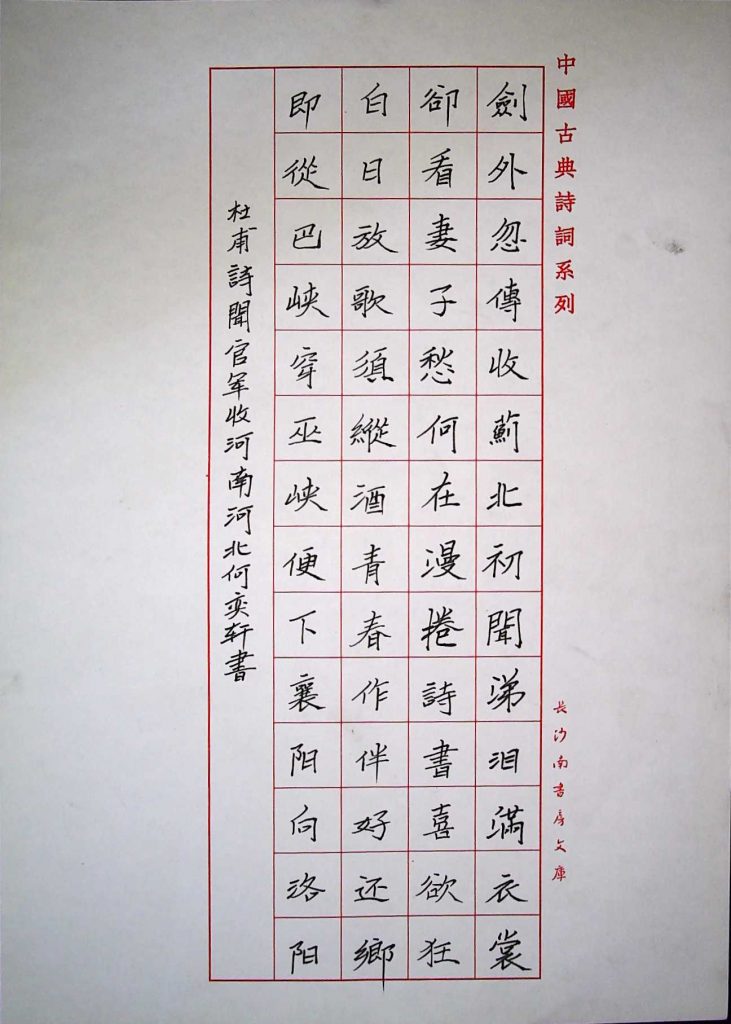 中國古典詩詞系列
長沙南書房文庫
劍外忽傳收薊北初聞涕泪滿衣裳
卻看妻子愁何在漫捲詩書喜欲狂
白日放歌須縱酒青春作伴好还鄉
即從巴峡穿巫峡便下襄阳向洛阳
杜甫詩聞官军收河南河北何奕轩書